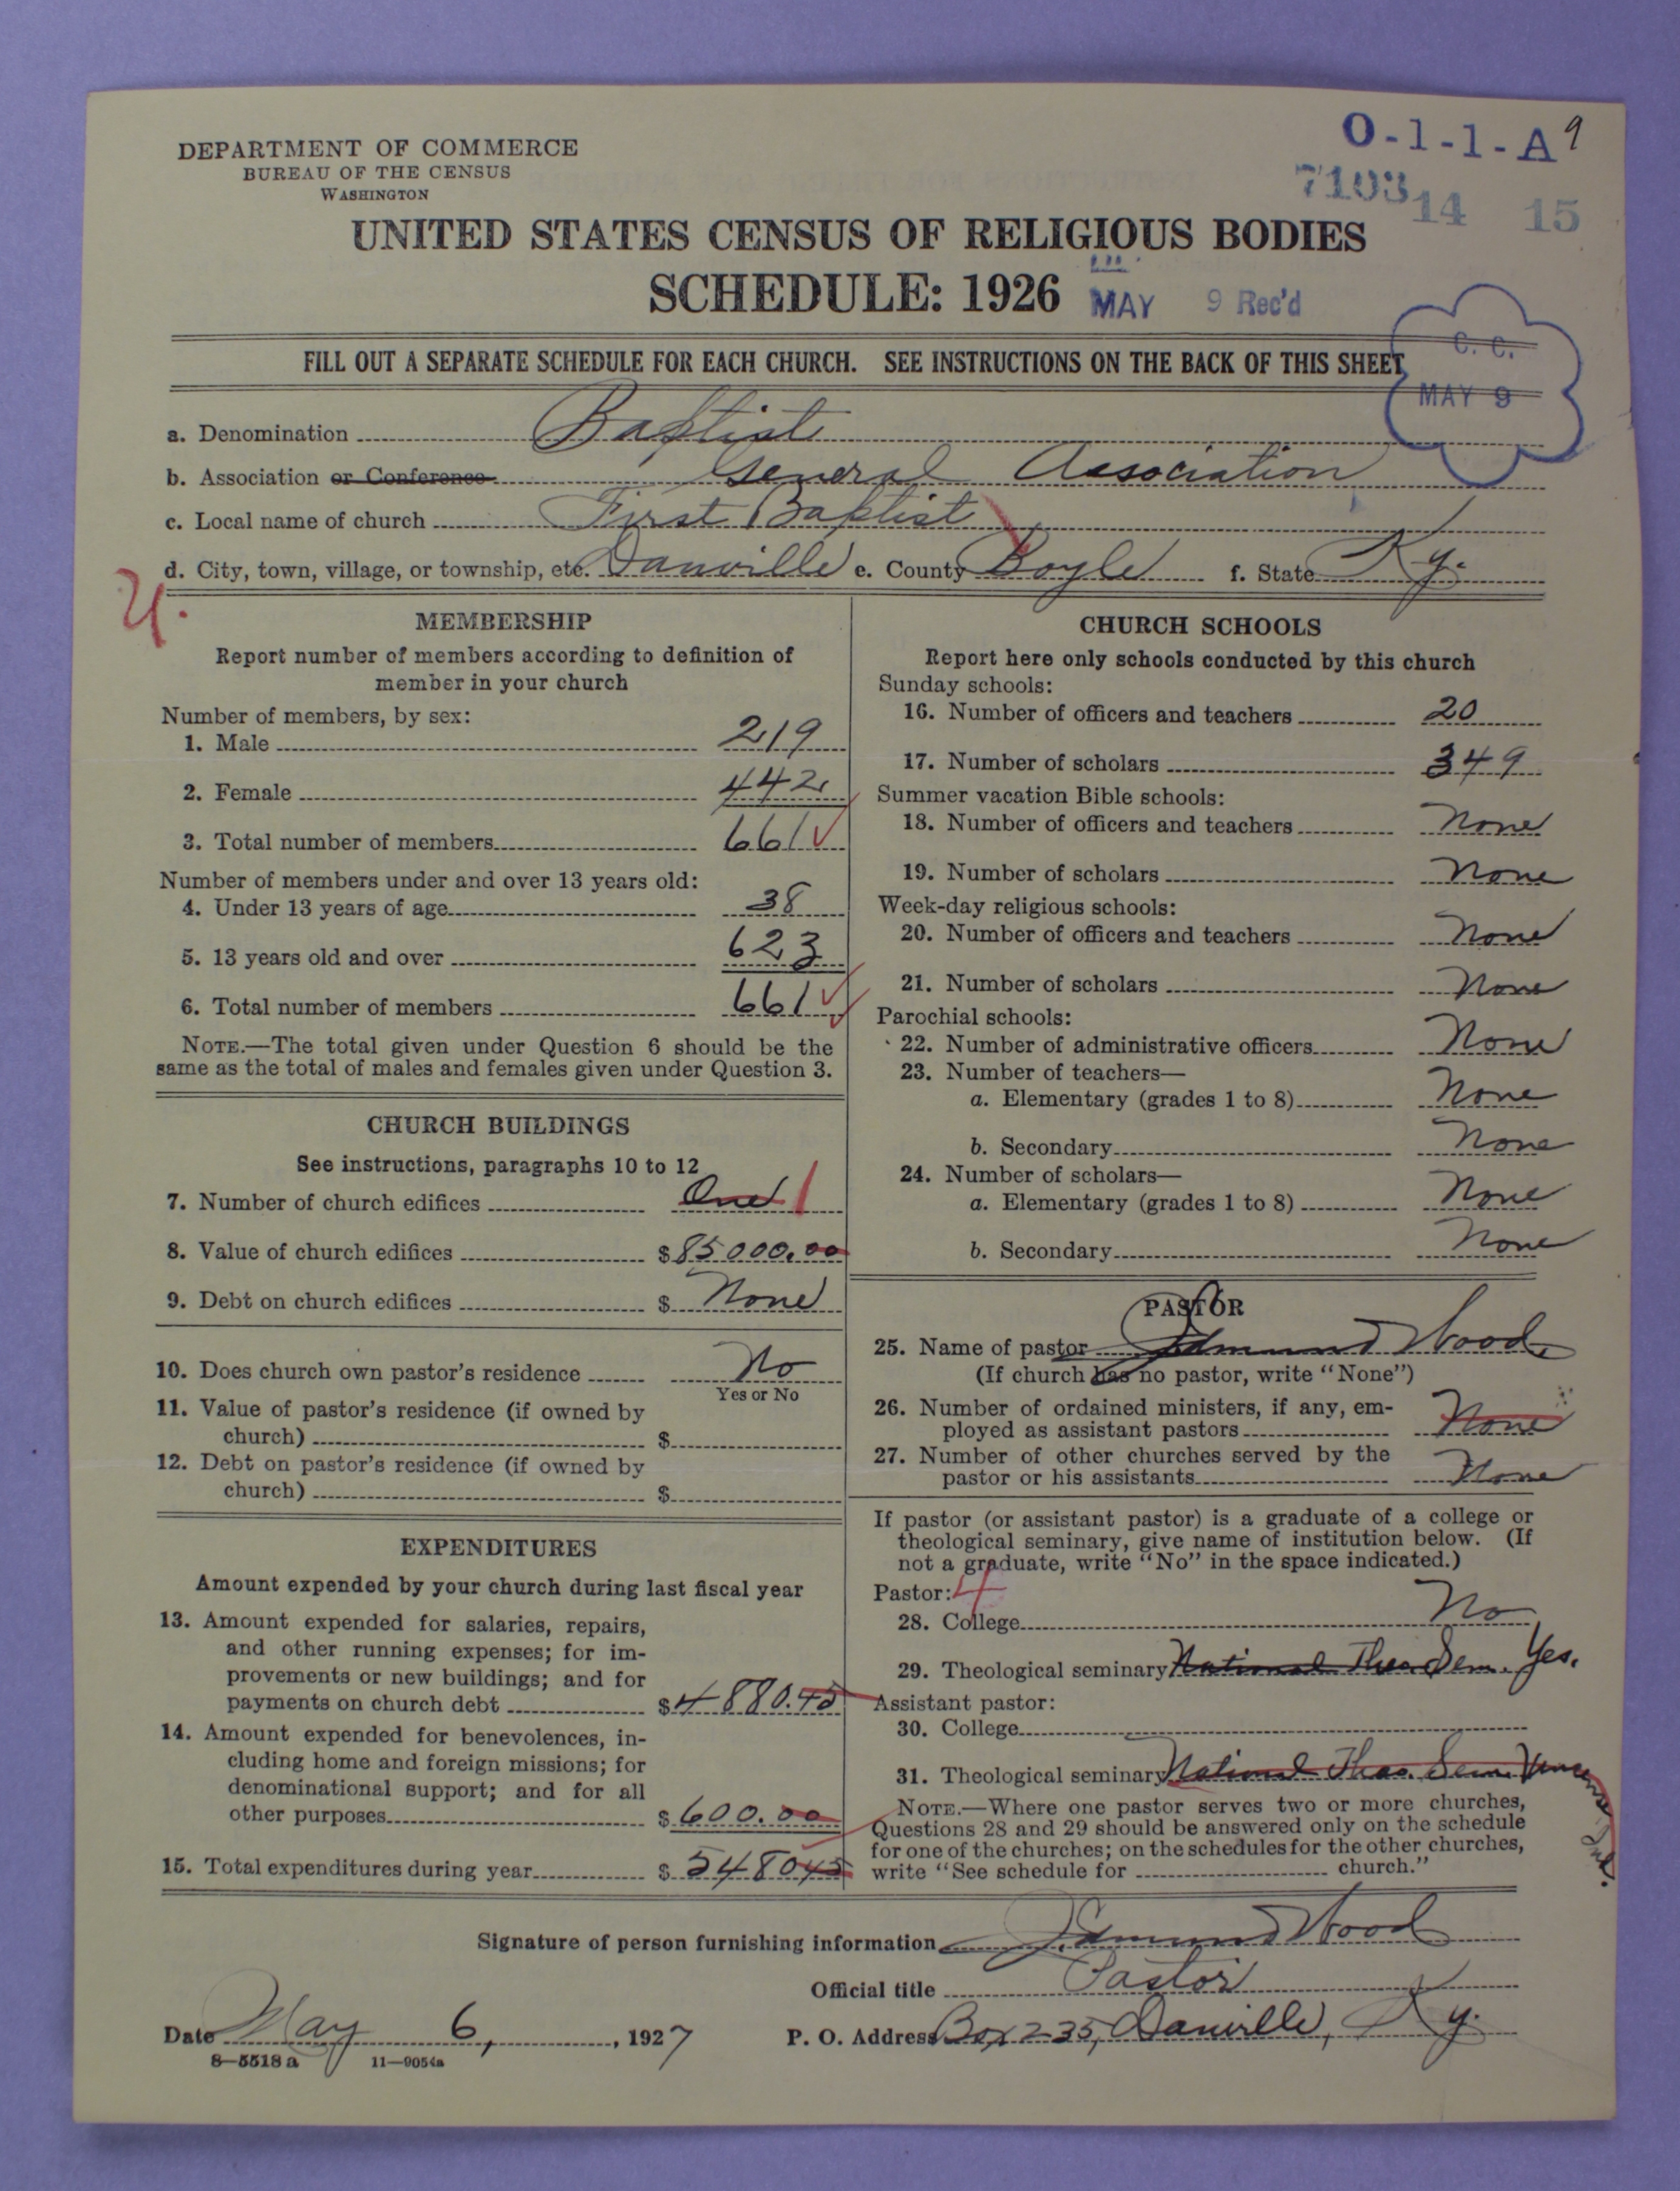 DEPARTMENT OF COMMERCE
BUREAU OF THE CENSUS
WASHINGTON
O-1-1-A 9
7103 14 15
UNITED STATES CENSUS OF RELIGIOUS BODIES
SCHEDULE: 1926
MAY 9 Rec'd
C. C.
MAY 9
FILL OUT A SEPARATE SCHEDULE FOR EACH CHURCH. SEE INSTRUCTIONS ON THE BACK OF THIS SHEET
a. Denomination Baptist
b. Association or Conference General Association
c. Local name of church First Baptist
d. City, town, village, or township, etc. Danville e. County Boyle f. State Ky.
MEMBERSHIP
Report number of members according to definition of
member in your church
Number of members, by sex:
1. Male 219
2. Female 442
3. Total number of members 661
Number of members under and over 13 years old:
4. Under 13 years of age 38
5. 13 years old and over 623
6. Total number of members 661
NOTE.—The total given under Question 6 should be the
same as the total of males and females given under Question 3.
CHURCH BUILDINGS
See instructions, paragraphs 10 to 12
7. Number of church edifices One 1
8. Value of church edifices $85000.00
9. Debt on church edifices $ None
10. Does church own pastor's residence No
Yes or No
11. Value of pastor's residence (if owned by
church) $
12. Debt on pastor's residence (if owned by
church) $
EXPENDITURES
Amount expended by your church during last fiscal year
13. Amount expended for salaries, repairs,
and other running expenses; for im-
provements or new buildings; and for
payments on church debt $4880.45
14. Amount expended for benevolences, in-
cluding home and foreign missions; for
denominational support; and for all
other purposes $600.00
15. Total expenditures during year $548045
CHURCH SCHOOLS
Report here only schools conducted by this church
Sunday schools:
16. Number of officers and teachers 20
17. Number of scholars 349
Summer vacation Bible schools:
18. Number of officers and teachers None
19. Number of scholars None
Week-day religious schools:
20. Number of officers and teachers None
21. Number of scholars None
Parochial schools:
22. Number of administrative officers None
23. Number of teachers—
a. Elementary (grades 1 to 8) None
b. Secondary None
24. Number of scholars—
a. Elementary (grades 1 to 8) None
b. Secondary None
PASTOR
25. Name of pastor J. Edmund Wood,
(If church has no pastor, write "None")
26. Number of ordained ministers, if any, em-
ployed as assistant pastors None
27. Number of other churches served by the
pastor or his assistants None
If pastor (or assistant pastor) is a graduate of a college or
theological seminary, give name of institution below. (If
not a graduate, write "No" in the space indicated.)
Pastor: 4
28. College No
29. Theological seminary National Theo. Sem. Yes.
Assistant pastor:
30. College
31. Theological seminary National Theo. Sem.
NOTE.—Where one pastor serves two or more churches,
Questions 28 and 29 should be answered only on the schedule
for one of the churches; on the schedules for the other churches,
write "See schedule for church."
Signature of person furnishing information J. Edmund Wood
Official title Pastor
Date May 6, , 1927 P. O. Address Box 235, Danville, Ky.
8—5518 a 11—9054a